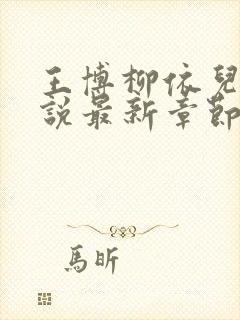 王博柳依兒
說最新章節
馬昕